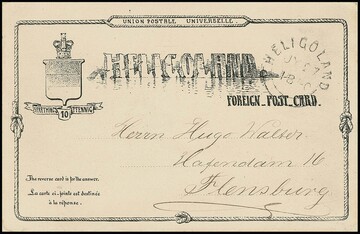 UNION POSTALE UNIVERSELLE
HELIGOLAND
HELIGOLAND
FOREIGN POST CARD.
FARTHINGS 10 PFENNIG
Herrn Hugo Walser
Hafendam 16
Flensburg
The reverse card is for the answer.
La carte ci-jointe est destinée
à la réponse.